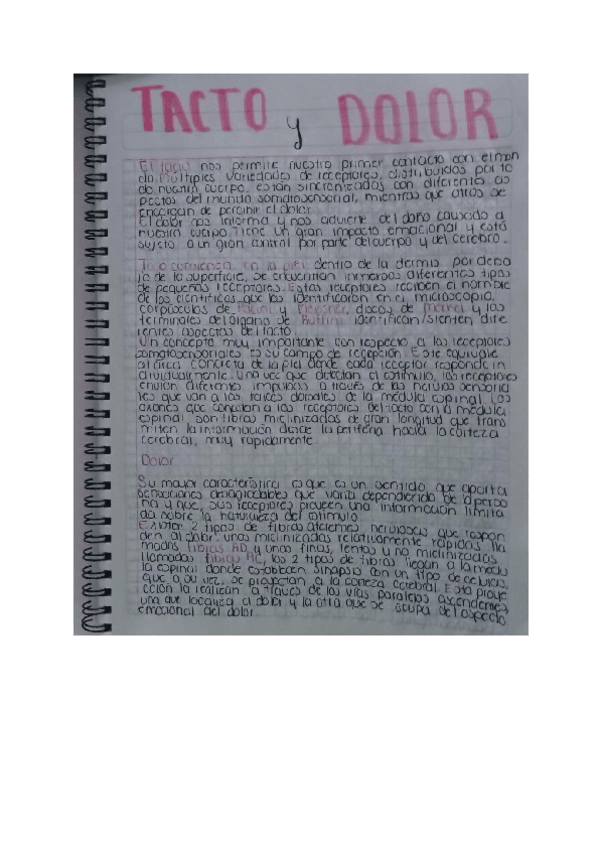 TACTO y DOLOR
El tacto nos permite nuestro primer contacto con el mun
do. Múltiples variedades de receptores, distribuidos por to
do nuestro cuerpo, están sincronizados con diferentes as
pectos del mundo somatosensorial, mientras que otros se
encargan de percibir el dolor.
El dolor nos informa y nos advierte del daño causado a
nuestro cuerpo. Tiene un gran impacto emocional y está
sujeto a un gran control por parte del cuerpo y del cerebro.
Todo comienza en la piel, dentro de la dermis, por deba
jo de la superficie, se encuentran inmersos diferentes tipos
de pequeños receptores. Estos receptores reciben el nombre
de los científicos que los identificaron en el microscopio,
corpúsculos de Pacini y Meissner, discos de Merkel y las
terminales del órgano de Ruffini identifican/sienten dife
rentes aspectos del tacto.
Un concepto muy importante con respecto a los receptores
somatosensoriales es su campo de recepción. Este equivale
al área concreta de la piel donde cada receptor responde in
dividualmente. Una vez que detectan el estímulo, los receptores
envían diferentes impulsos a través de los nervios sensoria
les que van a las raíces dorsales de la médula espinal. Los
axones que conectan a los receptores del tacto con la médula
espinal son fibras mielinizadas de gran longitud que trans
miten la información desde la periferia hacia la corteza
cerebral, muy rápidamente.
Dolor
Su mayor característica es que es un sentido que aporta
sensaciones desagradables que varía dependiendo de la perso
na y que, sus receptores proveen una información limita
da sobre la naturaleza del estímulo.
Existen 2 tipos de fibras aferentes nerviosas que respon
den al dolor: unas mielinizadas relativamente rápidas lla
madas fibras AD y unas finas, lentas y no mielinizadas
llamadas fibras AC, los 2 tipos de fibras llegan a la médu
la espinal donde establecen sinapsis con un tipo de células,
que a su vez, se proyectan a la corteza cerebral. Esta proye
cción la realizan a través de las vías paralelas ascendentes
una que localiza el dolor y la otra que se ocupa del aspecto
emocional del dolor.